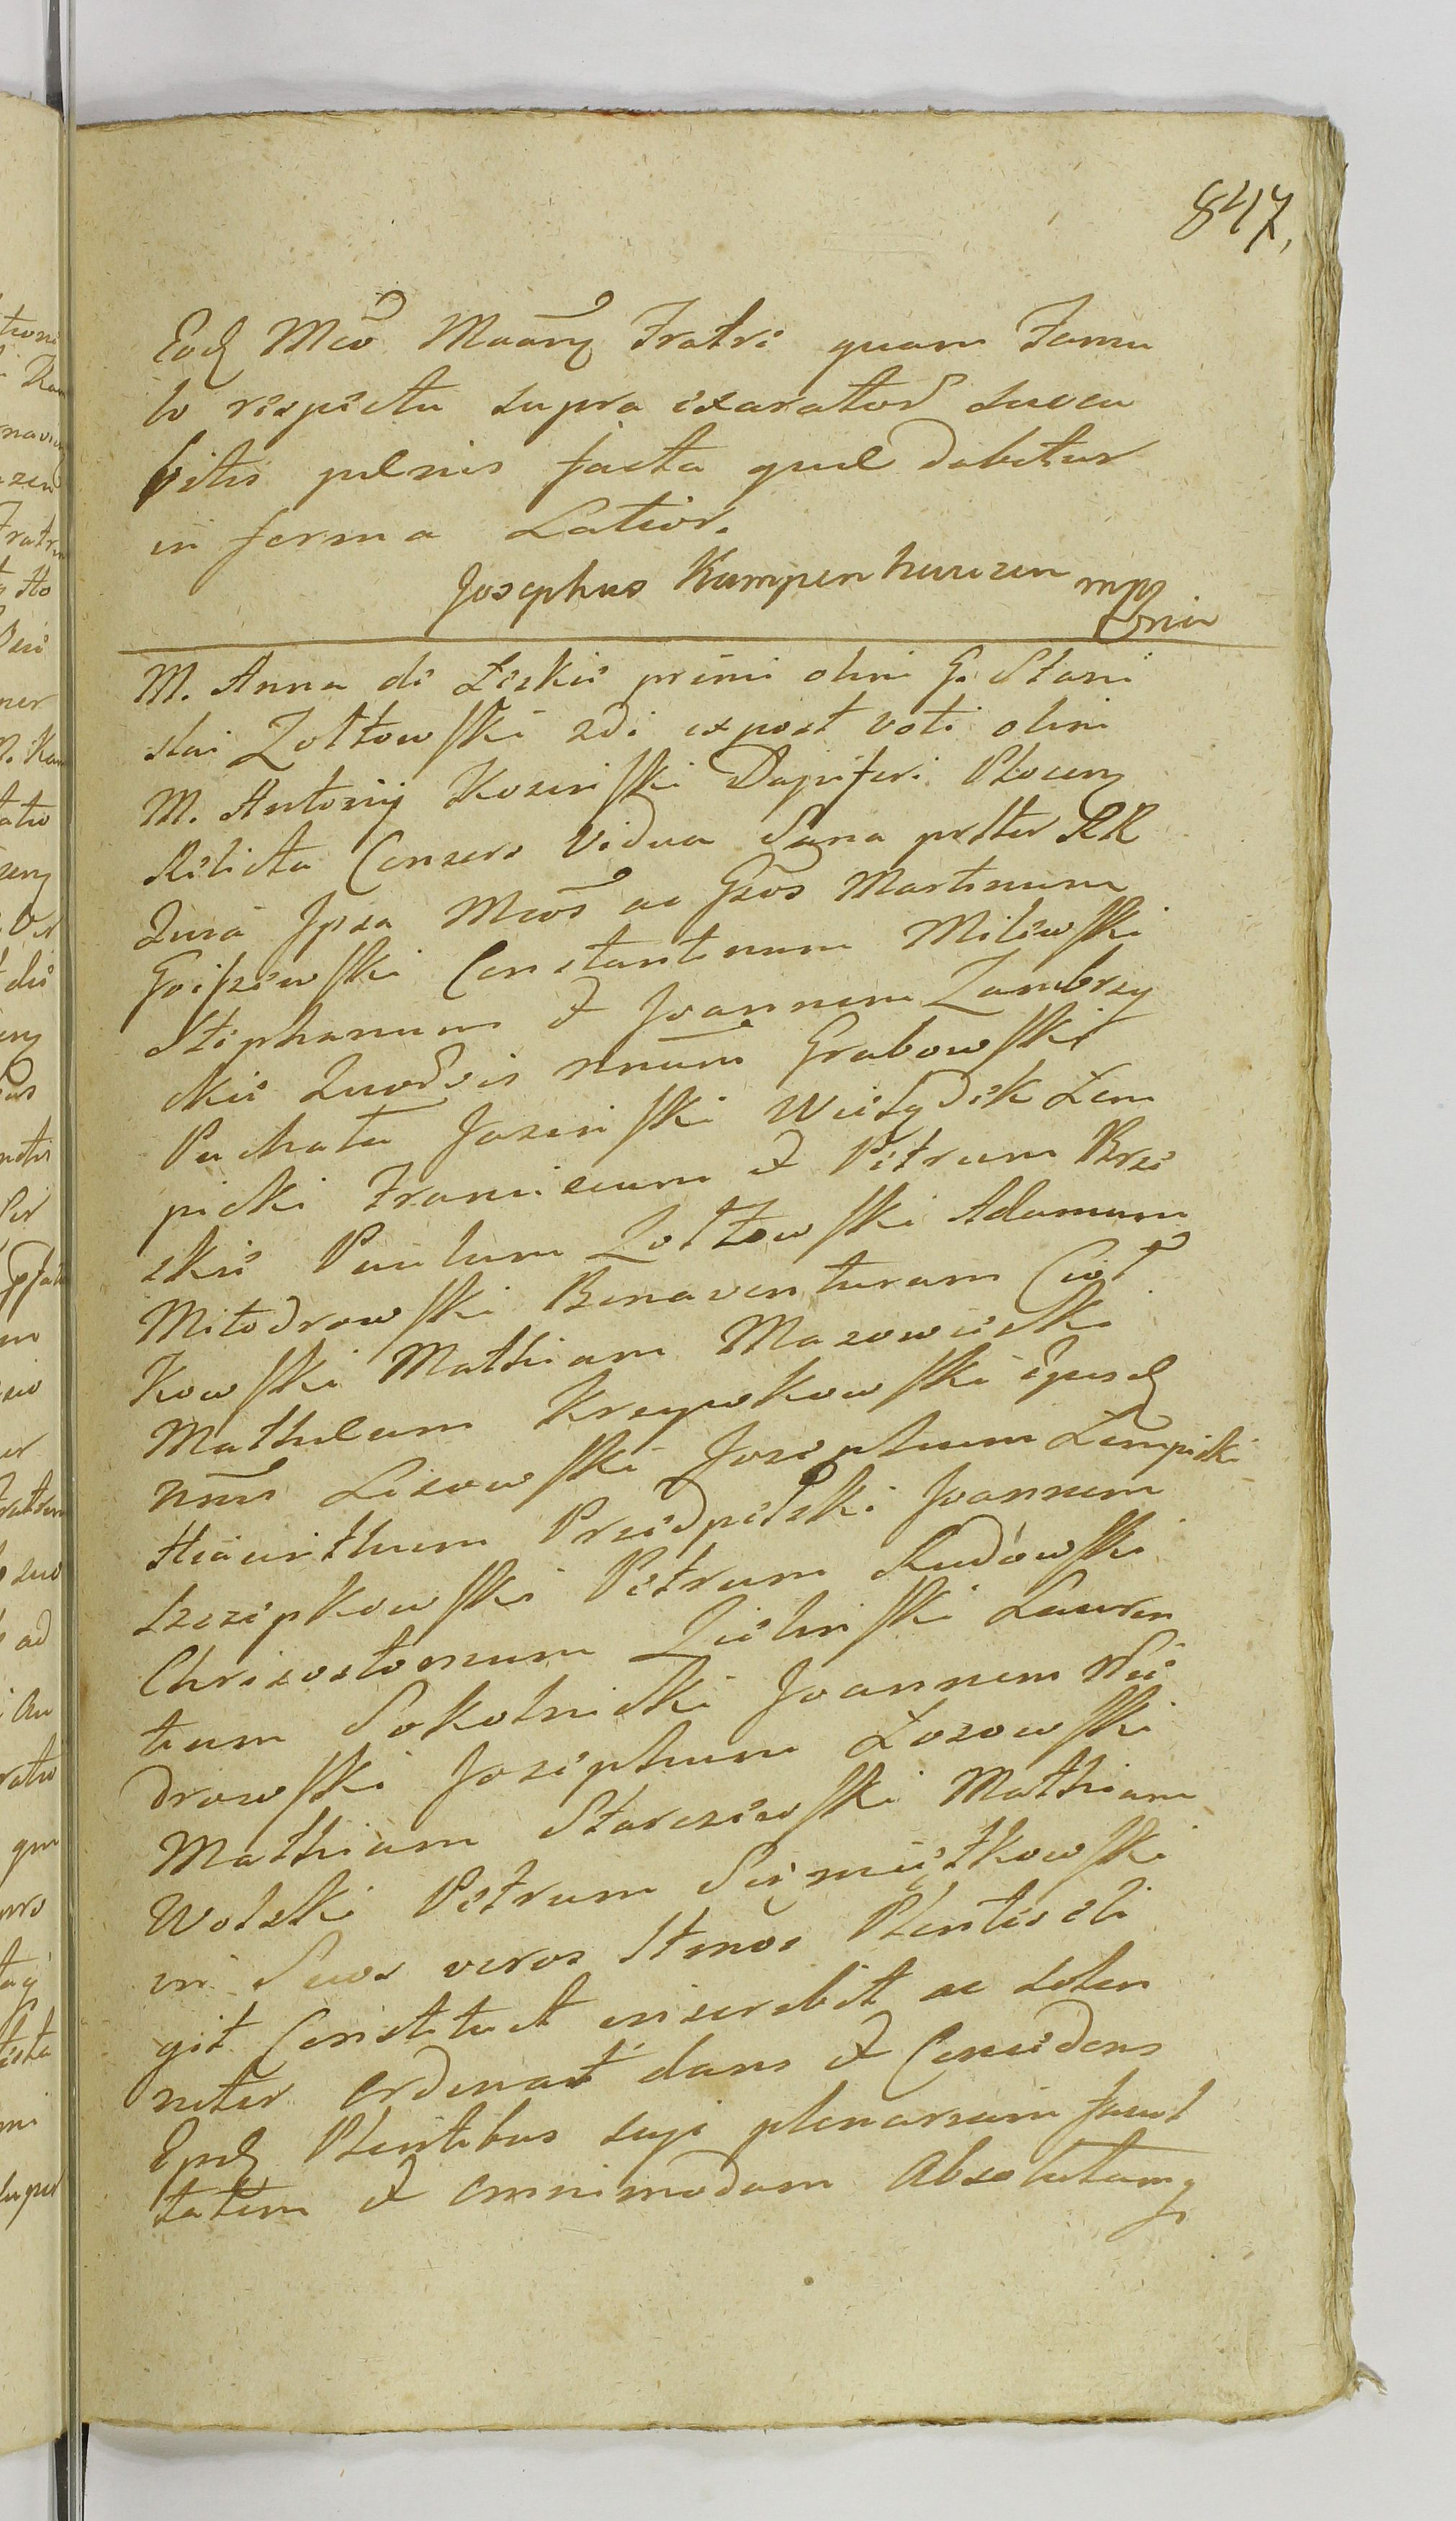 847,
Eod Mco Maanq Fratri quam Famu
lo respectu supra exaratos succu
bitis poenis facta que dabitur
in forma Latior.
Josephus Kampenhauzen mp
M. Anna de Łeskie primi olim G. Stani
slai Zołtowski 2di expost voti olim
M. Antonij Kosinski Dapiferi Płocenq
Relicta Consors Vidua Sana prtter RR
Jura Ipsa Mcos ac Gsos Martinum
Goiszewski Constantinum Milewski
Stephanum & Joannem Zambrzy
ckie Quodvis nnum Grabowski
Puchała Jozinski Woiżdzik Łem
picki Franciscum & Petrum Brze
skie Paulum Zołtowski Adamum
Miłodrowski Bonaventuram Cioł
kowski Mathiam Mazowiecki
Mathaeum Krzywkowski Ejusd
nnis Lisowski Josephum Łempicki
Hiacinthum Przedpelski Joannem
Szczepkowski Petrum Rudowski
Chrisostomum Zielinski Lauren
tium Sokolnicki Joannem Nie
drowski Josephum Łozowski
Mathiam Starczewski Mathiam
Wolski Petrum Siemiątkowski
in Suos veros Ltmos Plentes eli
git Constituit inscribit ac solen
niter ordinat dans & Concedens
Ejsd Plentibus suis plenariam facul
tatem & omnimodam Absolutamq